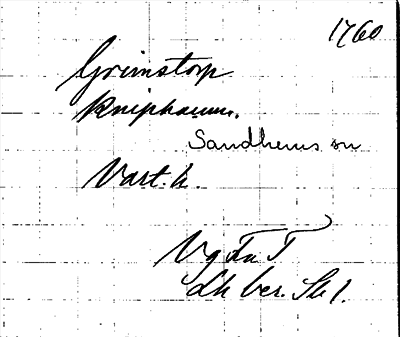 1760
Grimstorp
Kniphamn.
Sandhems sn
Vart. h.
Vg Fu T
Lh ber. Sk 1.